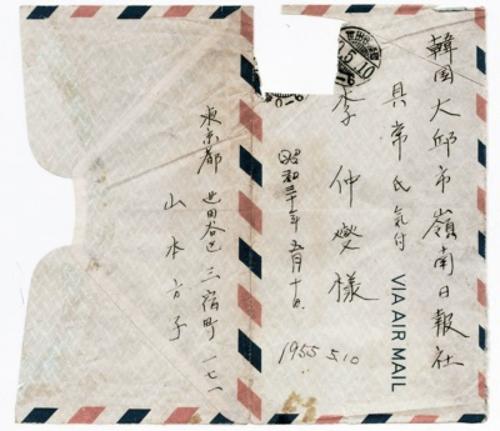 韓国大邱市嶺南日報社
具常氏気付
VIA AIR MAIL
李仲燮様
昭和三十年五月十日
1955 5.10
東京都 世田谷区三宿町一七一
山本方子
5.10